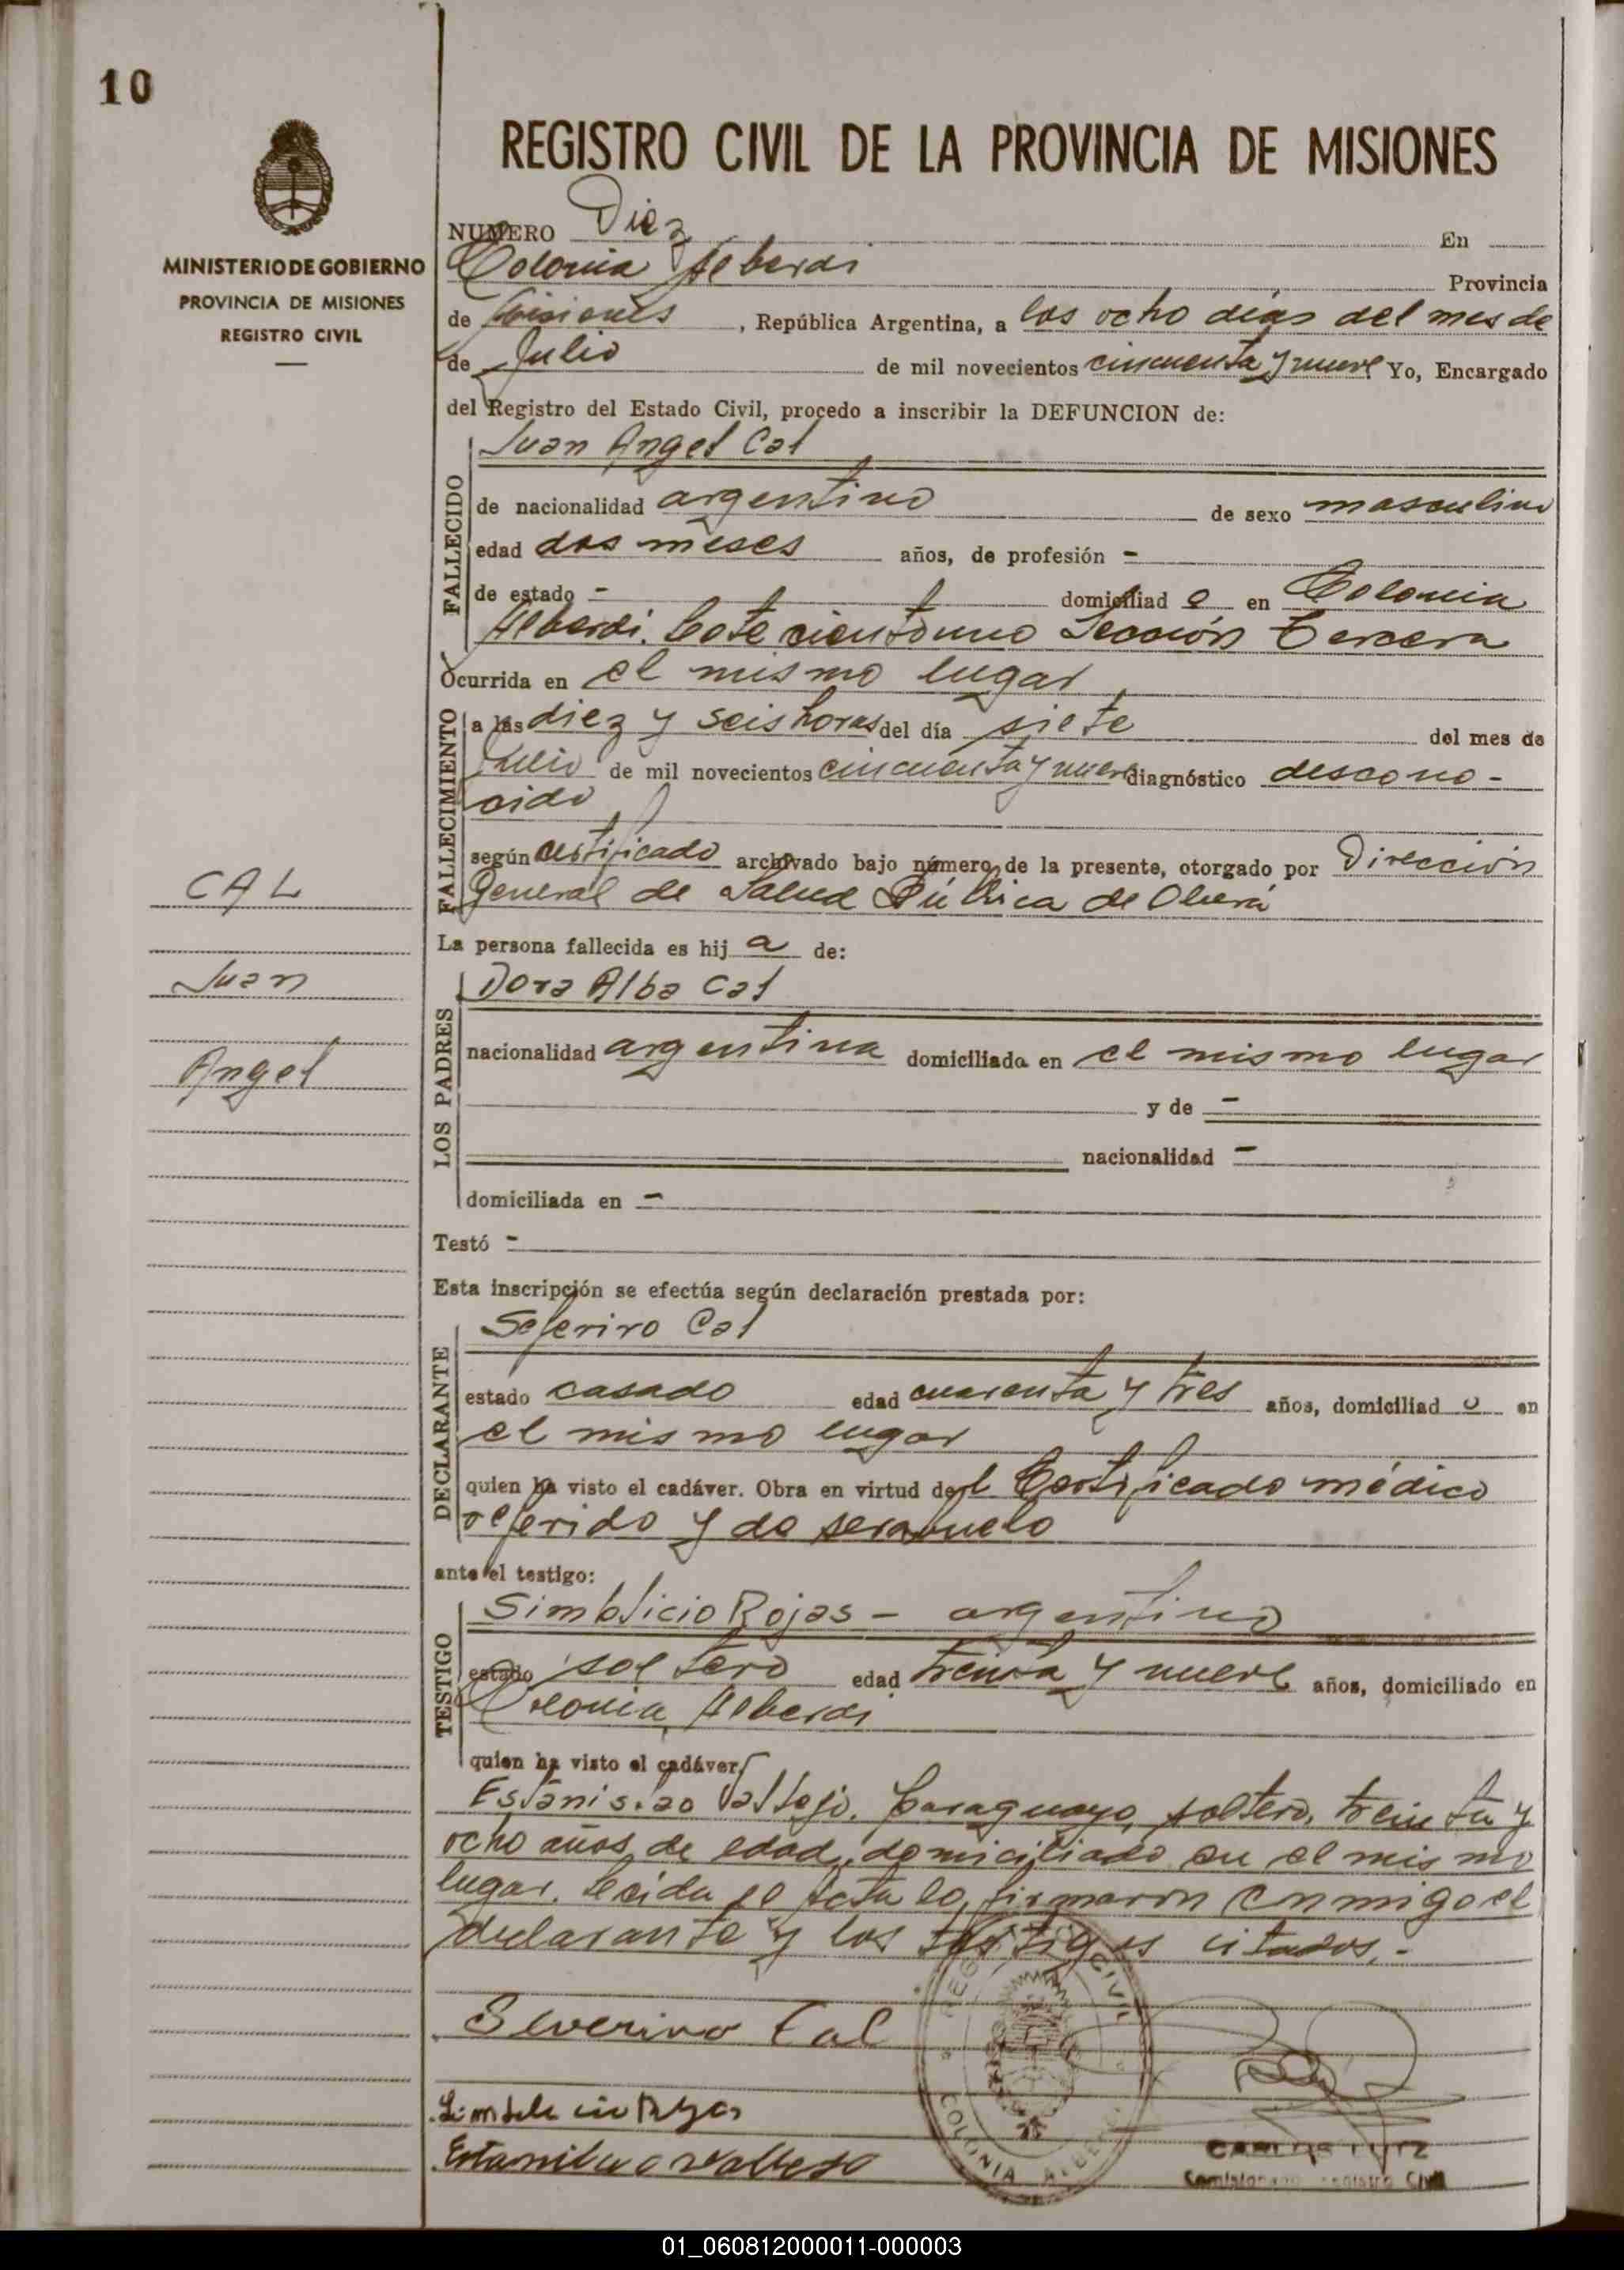 10
REGISTRO CIVIL DE LA PROVINCIA DE MISIONES
MINISTERIO DE GOBIERNO
PROVINCIA DE MISIONES
REGISTRO CIVIL
NUMERO Diez En
Colonia Alberdi Provincia
de Misiones, República Argentina, a los ocho días del mes de
de Julio de mil novecientos cincuenta y nueve Yo, Encargado
del Registro del Estado Civil, procedo a inscribir la DEFUNCION de:
FALLECIDO
Juan Angel Cal
de nacionalidad argentino de sexo masculino
edad dos meses años, de profesión -
de estado - domiciliad o en Colonia
Alberdi. Lote ciento uno Sección Tercera
Ocurrida en el mismo lugar
FALLECIMIENTO
a las diez y seis horas del día siete del mes de
Julio de mil novecientos cincuenta y nueve diagnóstico descono-
cido
según certificado archivado bajo número de la presente, otorgado por Dirección
General de Salud Pública de Oberá
CAL
Juan
Angel
La persona fallecida es hij a de:
LOS PADRES
Dora Alba Cal
nacionalidad argentina domiciliada en el mismo lugar
y de -
nacionalidad -
domiciliada en -
Testó -
Esta inscripción se efectúa según declaración prestada por:
DECLARANTE
Seferiro Cal
estado casado edad cuarenta y tres años, domiciliad o en
el mismo lugar
quien ha visto el cadáver. Obra en virtud del Certificado médico
referido y de ser abuelo
ante el testigo:
TESTIGO
Simblicio Rojas - argentino
estado soltero edad treinta y nueve años, domiciliado en
Colonia Alberdi
quien ha visto el cadáver
Estanislao Vallejo, paraguayo, soltero, treinta y
ocho años de edad, domiciliado en el mismo
lugar. Leída el Acta la firmaron conmigo el
declarante y los testigos citados.-
Severino Cal
Estanislao Vallejo
REGISTRO CIVIL
COLONIA ALBERDI
CARLOS LUTZ
Registro Civil
01_060812000011-000003